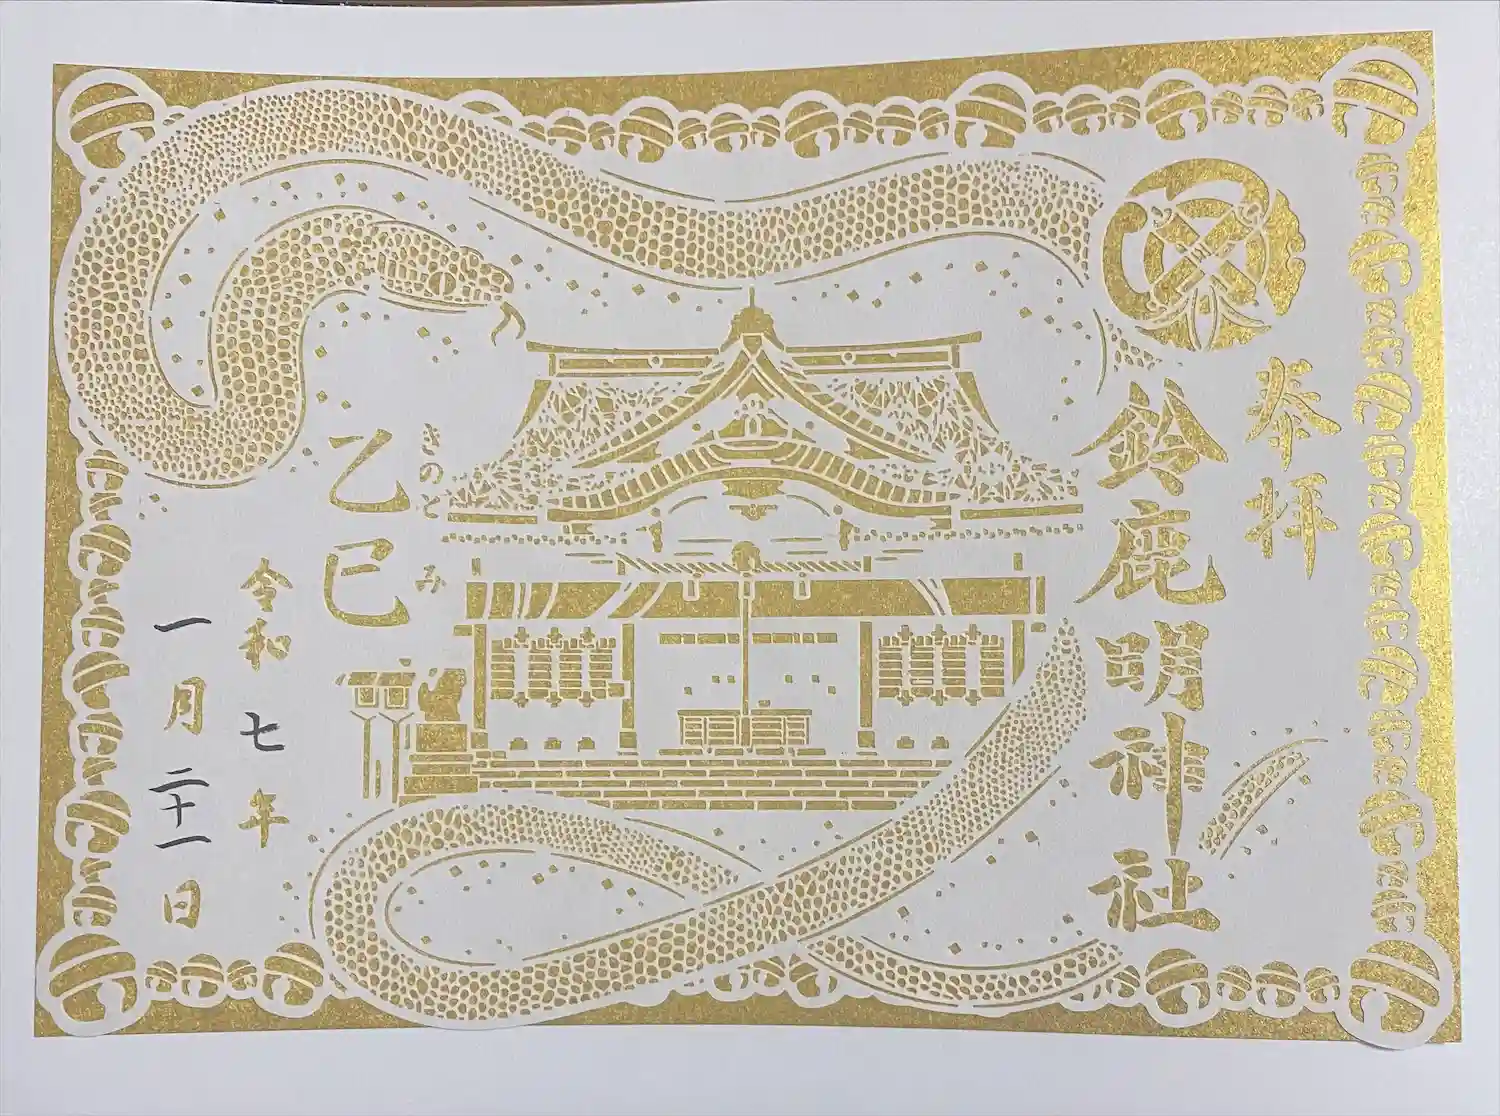 奉拝
鈴鹿明神社
きのと み
乙巳
令和七年
一月二十一日